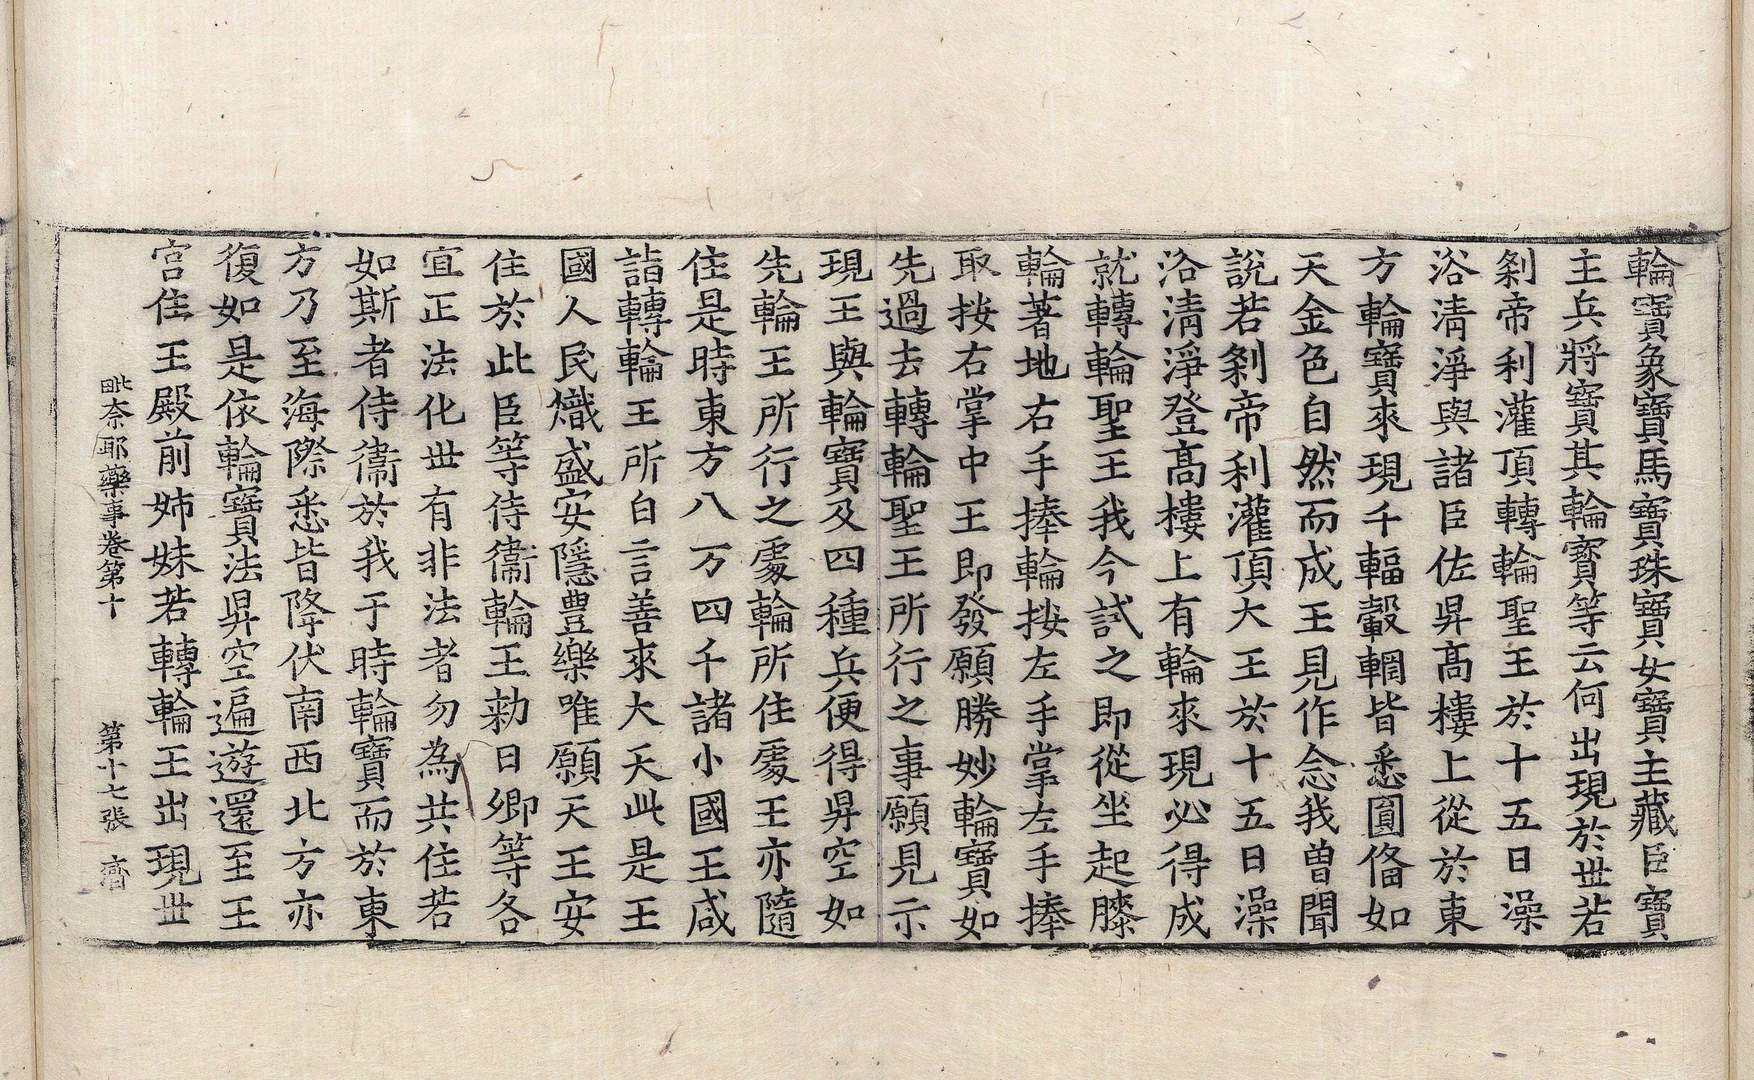 輪寶象寶馬寶珠寶女寶主藏臣寶
主兵將寶其輪寶等云何出現於世若
剎帝利灌頂轉輪聖王於十五日澡
浴清淨與諸臣佐昇高樓上從於東
方輪寶來現千輻轂輞皆悉圓俻如
天金色自然而成王見作念我曽聞
說若剎帝利灌頂大王於十五日澡
浴清淨登高樓上有輪來現必得成
就轉輪聖王我今試之即從坐起膝
輪著地右手捧輪按左手掌左手捧
取按右掌中王即發願勝妙輪寶如
先過去轉輪聖王所行之事願見示
現王與輪寶及四種兵便得昇空如
先輪王所行之處輪所住處王亦隨
住是時東方八万四千諸小國王咸
詣轉輪王所白言善來大天此是王
國人民熾盛安隱豊樂唯願天王安
住於此臣等侍衞輪王勑曰卿等各
宜正法化世有非法者勿為共住若
如斯者侍衞於我于時輪寶而於東
方乃至海際悉皆降伏南西北方亦
復如是依輪寶法昇空遍遊還至王
宮住王殿前姊妹若轉輪王出現世
毗奈耶藥事卷第十 第十七張 齊